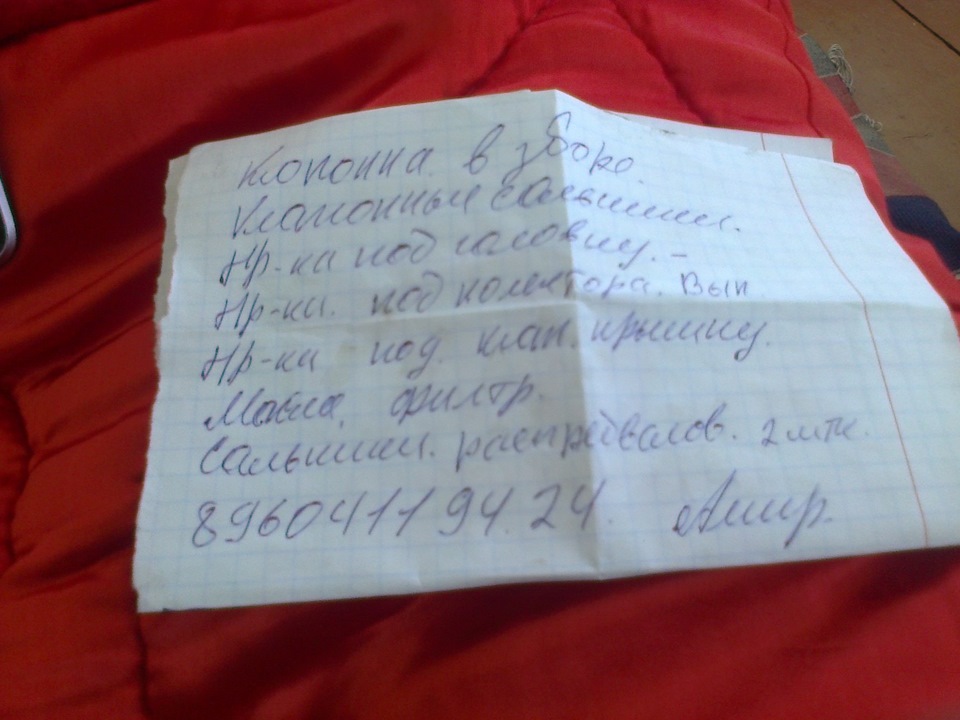 Колонка в зборе.
Клапонные сальники.
Пр-ка под головку. -
Пр-ки. под колектора. Вып
Пр-ки под. клап. крышку.
Масла, фильтр.
Сальники. распредвалов. 2 штк.
8960411 94. 24. Амир.